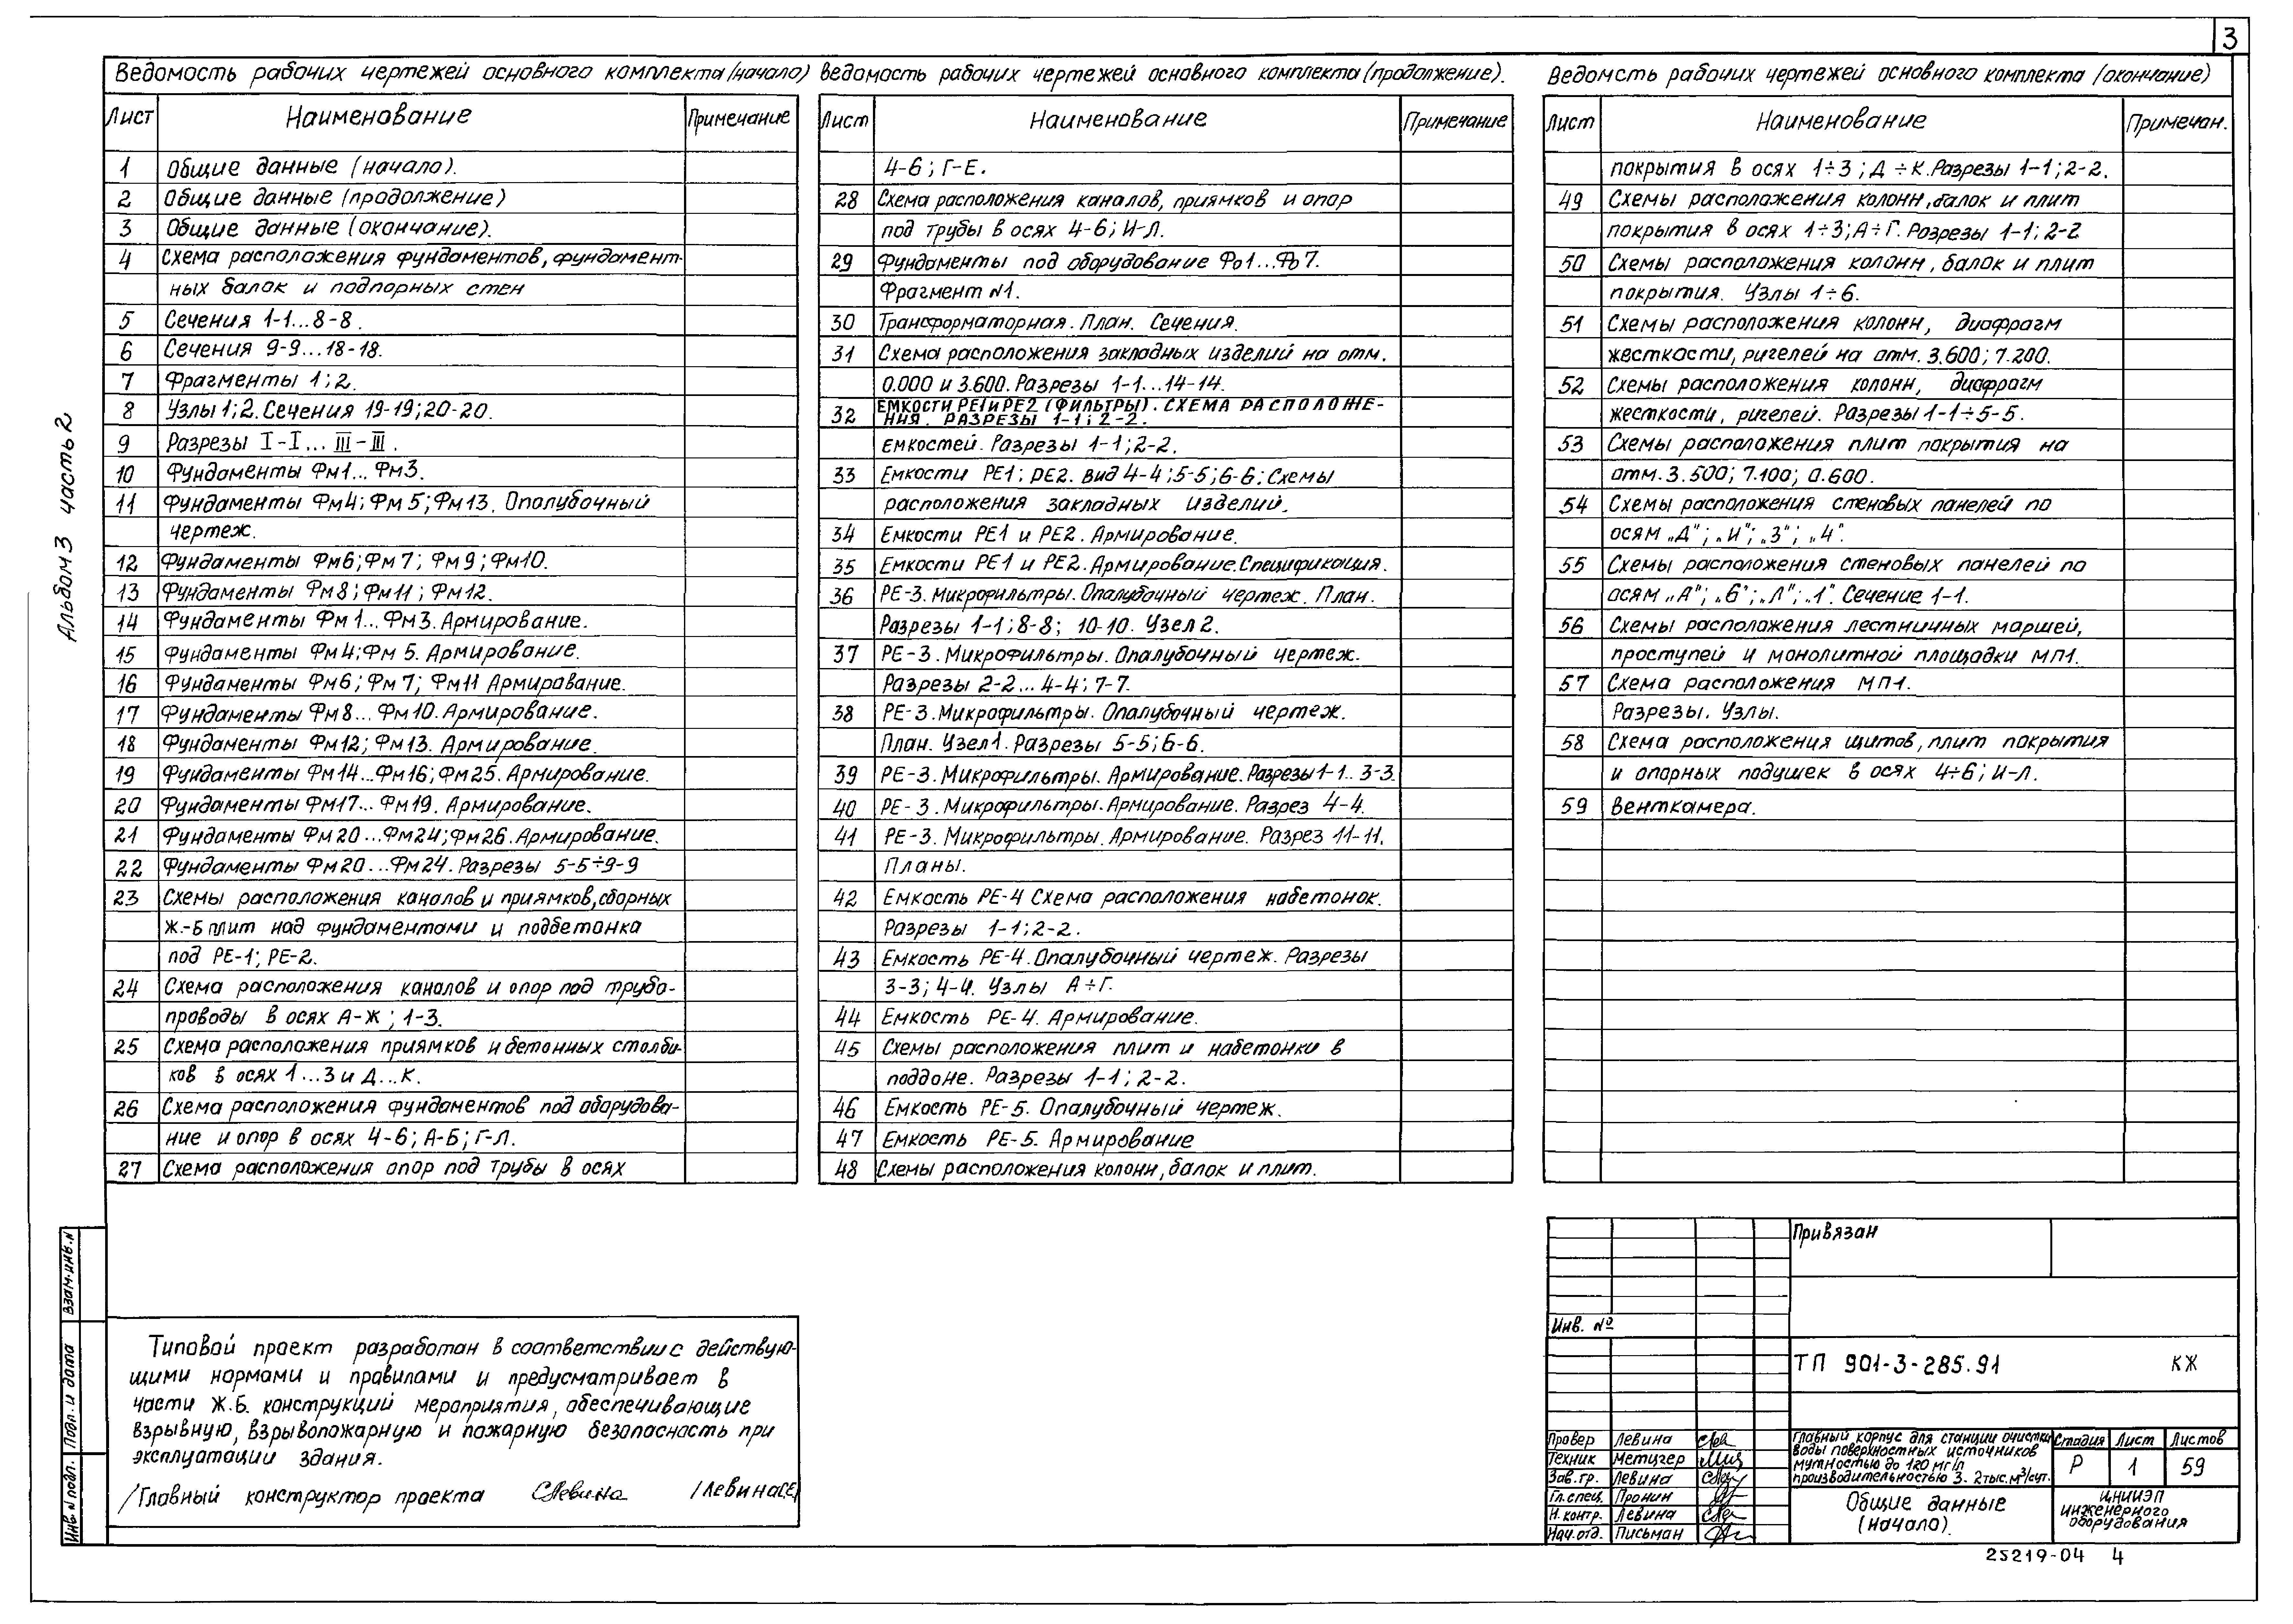 3
Альбом 3 часть 2
Ведомость рабочих чертежей основного комплекта (начало)
Лист Наименование Примечание
1 Общие данные (начало).
2 Общие данные (продолжение)
3 Общие данные (окончание).
4 Схема расположения фундаментов, фундамент-
ных балок и подпорных стен
5 Сечения 1-1...8-8.
6 Сечения 9-9...18-18.
7 Фрагменты 1; 2.
8 Узлы 1; 2. Сечения 19-19; 20-20.
9 Разрезы I-I... III-III.
10 Фундаменты Фм1... Фм3.
11 Фундаменты Фм4; Фм5; Фм13. Опалубочный
чертеж.
12 Фундаменты Фм6; Фм7; Фм9; Фм10.
13 Фундаменты Фм8; Фм11; Фм12.
14 Фундаменты Фм1... Фм3. Армирование.
15 Фундаменты Фм4; Фм5. Армирование.
16 Фундаменты Фм6; Фм7; Фм11 Армирование.
17 Фундаменты Фм8... Фм10. Армирование.
18 Фундаменты Фм12; Фм13. Армирование.
19 Фундаменты Фм14...Фм16; Фм25. Армирование.
20 Фундаменты Фм17... Фм19. Армирование.
21 Фундаменты Фм20...Фм24; Фм26. Армирование.
22 Фундаменты Фм20...Фм24. Разрезы 5-5÷9-9
23 Схемы расположения каналов и приямков, сборных
ж.-б плит над фундаментами и подбетонка
под РЕ-1; РЕ-2.
24 Схема расположения каналов и опор под трубо-
проводы в осях А-Ж; 1-3.
25 Схема расположения приямков и бетонных столби-
ков в осях 1...3 и Д...К.
26 Схема расположения фундаментов под оборудова-
ние и опор в осях 4-6; А-Б; Г-Л.
27 Схема расположения опор под трубы в осях
Ведомость рабочих чертежей основного комплекта (продолжение).
Лист Наименование Примечание
4-6; Г-Е.
28 Схема расположения каналов, приямков и опор
под трубы в осях 4-6; И-Л.
29 Фундаменты под оборудование Фо1...Фо7.
Фрагмент N1.
30 Трансформаторная. План. Сечения.
31 Схема расположения закладных изделий на отм.
0.000 и 3.600. Разрезы 1-1...14-14.
32 ЕМКОСТИ РЕ1 И РЕ2 (ФИЛЬТРЫ). СХЕМА РАСПОЛОЖЕ-
НИЯ. РАЗРЕЗЫ 1-1; 2-2.
емкостей. Разрезы 1-1; 2-2.
33 Емкости РЕ1; РЕ2. Вид 4-4; 5-5; 6-6; Схемы
расположения закладных изделий.
34 Емкости РЕ1 и РЕ2. Армирование.
35 Емкости РЕ1 и РЕ2. Армирование. Спецификация.
36 РЕ-3. Микрофильтры. Опалубочный чертеж. План.
Разрезы 1-1; 8-8; 10-10. Узел 2.
37 РЕ-3. Микрофильтры. Опалубочный чертеж.
Разрезы 2-2... 4-4; 7-7.
38 РЕ-3. Микрофильтры. Опалубочный чертеж.
План. Узел 1. Разрезы 5-5; 6-6.
39 РЕ-3. Микрофильтры. Армирование. Разрезы 1-1.. 3-3.
40 РЕ-3. Микрофильтры. Армирование. Разрез 4-4.
41 РЕ-3. Микрофильтры. Армирование. Разрез 11-11.
Планы.
42 Емкость РЕ-4 Схема расположения набетонок.
Разрезы 1-1; 2-2.
43 Емкость РЕ-4. Опалубочный чертеж. Разрезы
3-3; 4-4. Узлы А÷Г.
44 Емкость РЕ-4. Армирование.
45 Схемы расположения плит и набетонки в
поддоне. Разрезы 1-1; 2-2.
46 Емкость РЕ-5. Опалубочный чертеж.
47 Емкость РЕ-5. Армирование
48 Схемы расположения колонн, балок и плит.
Ведомсть рабочих чертежей основного комплекта (окончание)
Лист Наименование Примечан.
покрытия в осях 1÷3; Д÷К. Разрезы 1-1; 2-2.
49 Схемы расположения колонн, балок и плит
покрытия в осях 1÷3; А÷Г. Разрезы 1-1; 2-2
50 Схемы расположения колонн, балок и плит
покрытия. Узлы 1÷6.
51 Схемы расположения колонн, диафрагм
жесткости, ригелей на отм. 3.600; 7.200.
52 Схемы расположения колонн, диафрагм
жесткости, ригелей. Разрезы 1-1÷5-5.
53 Схемы расположения плит покрытия на
отм. 3.500; 7.100; 0.600.
54 Схемы расположения стеновых панелей по
осям „Д"; „И"; „3"; „4".
55 Схемы расположения стеновых панелей по
осям „А"; „6"; „Л"; „1". Сечение 1-1.
56 Схемы расположения лестничных маршей,
проступей и монолитной площадки МП1.
57 Схема расположения МП1.
Разрезы. Узлы.
58 Схема расположения щитов, плит покрытия
и опорных подушек в осях 4÷6; И-Л.
59 Венткамера.
Типовой проект разработан в соответствии с действую-
щими нормами и правилами и предусматривает в
части ж.б. конструкций мероприятия, обеспечивающие
взрывную, взрывопожарную и пожарную безопасность при
эксплуатации здания.
/Главный конструктор проекта СЛевина /Левина СЕ/
Взам. инв. N
Подп. и дата
Инв. N подл.
Привязан
Инв. №
ТП 901-3-285.91 КЖ
Провер Левина
Техник Метцгер
Зав. гр. Левина
Гл. спец. Пронин
Н. контр. Левина
Нач. отд. Письман
Главный корпус для станции очистки
воды поверхностных источников
мутностью до 120 мг/л
производительностью 3. 2 тыс. м³/сут.
Стадия Лист Листов
Р 1 59
Общие данные
(начало).
ЦНИИЭП
инженерного
оборудования
25219-04 4